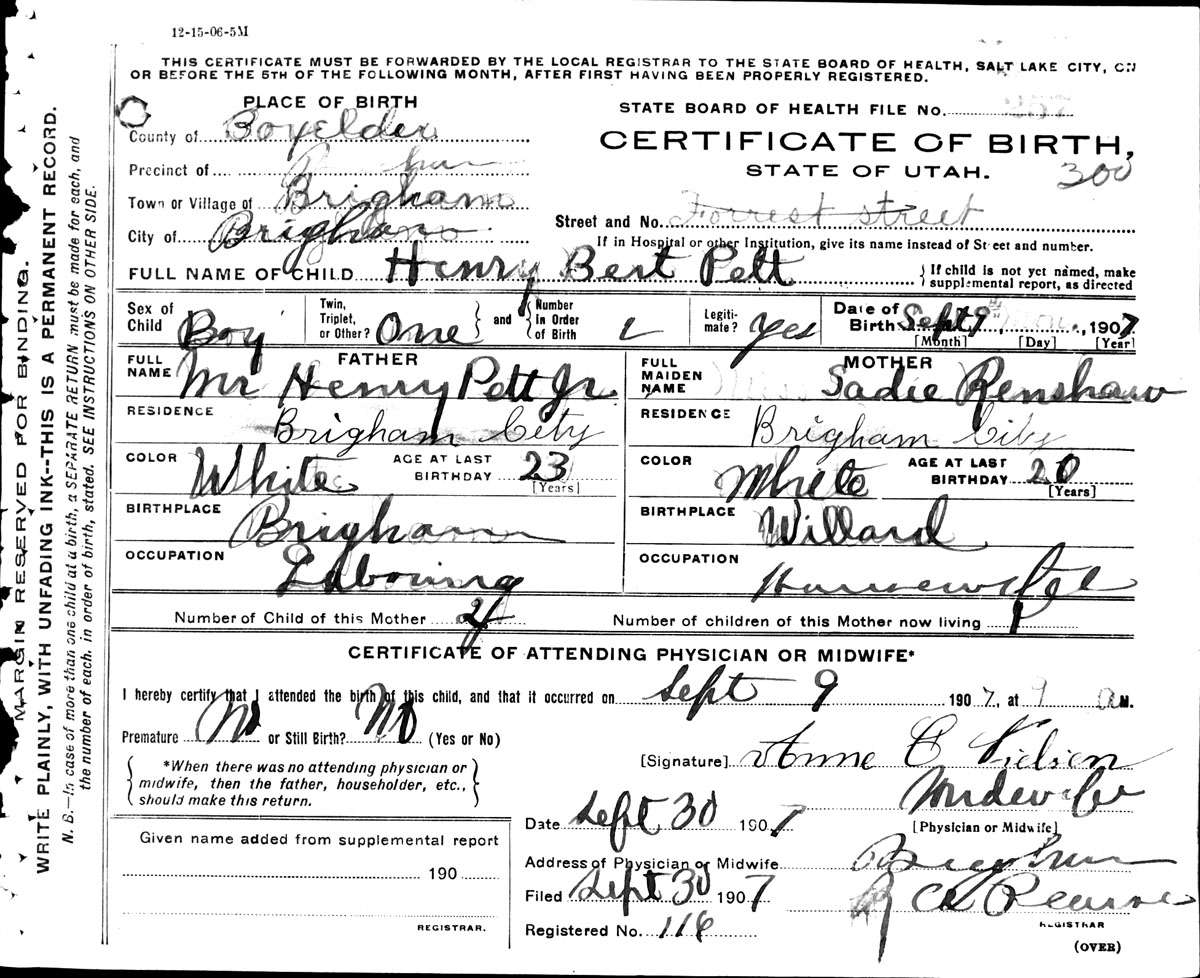 12-15-06-5M
THIS CERTIFICATE MUST BE FORWARDED BY THE LOCAL REGISTRAR TO THE STATE BOARD OF HEALTH, SALT LAKE CITY, ON
OR BEFORE THE 5TH OF THE FOLLOWING MONTH, AFTER FIRST HAVING BEEN PROPERLY REGISTERED.
PLACE OF BIRTH
County of Boxelder
Precinct of
Town or Village of Brigham
City of Brigham
STATE BOARD OF HEALTH FILE No. 257
CERTIFICATE OF BIRTH,
STATE OF UTAH.
300
Street and No. Forrest street
If in Hospital or other Institution, give its name instead of Street and number.
FULL NAME OF CHILD Henry Bert Pett
If child is not yet named, make
supplemental report, as directed
Sex of Child Boy
Twin, Triplet, or Other? One
and Number in Order of Birth
Legitimate? Yes
Date of Birth Sept 9, 1907
[Month] [Day] [Year]
FATHER
FULL NAME Mr Henry Pett Jr
RESIDENCE Brigham City
COLOR White AGE AT LAST BIRTHDAY 23
[Years]
BIRTHPLACE Brigham
OCCUPATION Labouring
MOTHER
FULL MAIDEN NAME Sadie Renshaw
RESIDENCE Brigham City
COLOR White AGE AT LAST BIRTHDAY 20
[Years]
BIRTHPLACE Willard
OCCUPATION Housewife
Number of Child of this Mother
Number of children of this Mother now living 1
CERTIFICATE OF ATTENDING PHYSICIAN OR MIDWIFE*
I hereby certify that I attended the birth of this child, and that it occurred on Sept 9 1907, at 9 a M.
Premature No or Still Birth? No (Yes or No)
*When there was no attending physician or
midwife, then the father, householder, etc.,
should make this return.
[Signature] Anne C Nielsen
Midewife
[Physician or Midwife]
Date Sept 30 1907
Address of Physician or Midwife Brigham
Filed Sept 30 1907
Registered No. 116
REGISTRAR
(OVER)
Given name added from supplemental report
190
REGISTRAR.
MARGIN RESERVED FOR BINDING.
WRITE PLAINLY, WITH UNFADING INK--THIS IS A PERMANENT RECORD.
N. B.—In case of more than one child at a birth, a SEPARATE RETURN must be made for each, and
the number of each, in order of birth, stated. SEE INSTRUCTIONS ON OTHER SIDE.